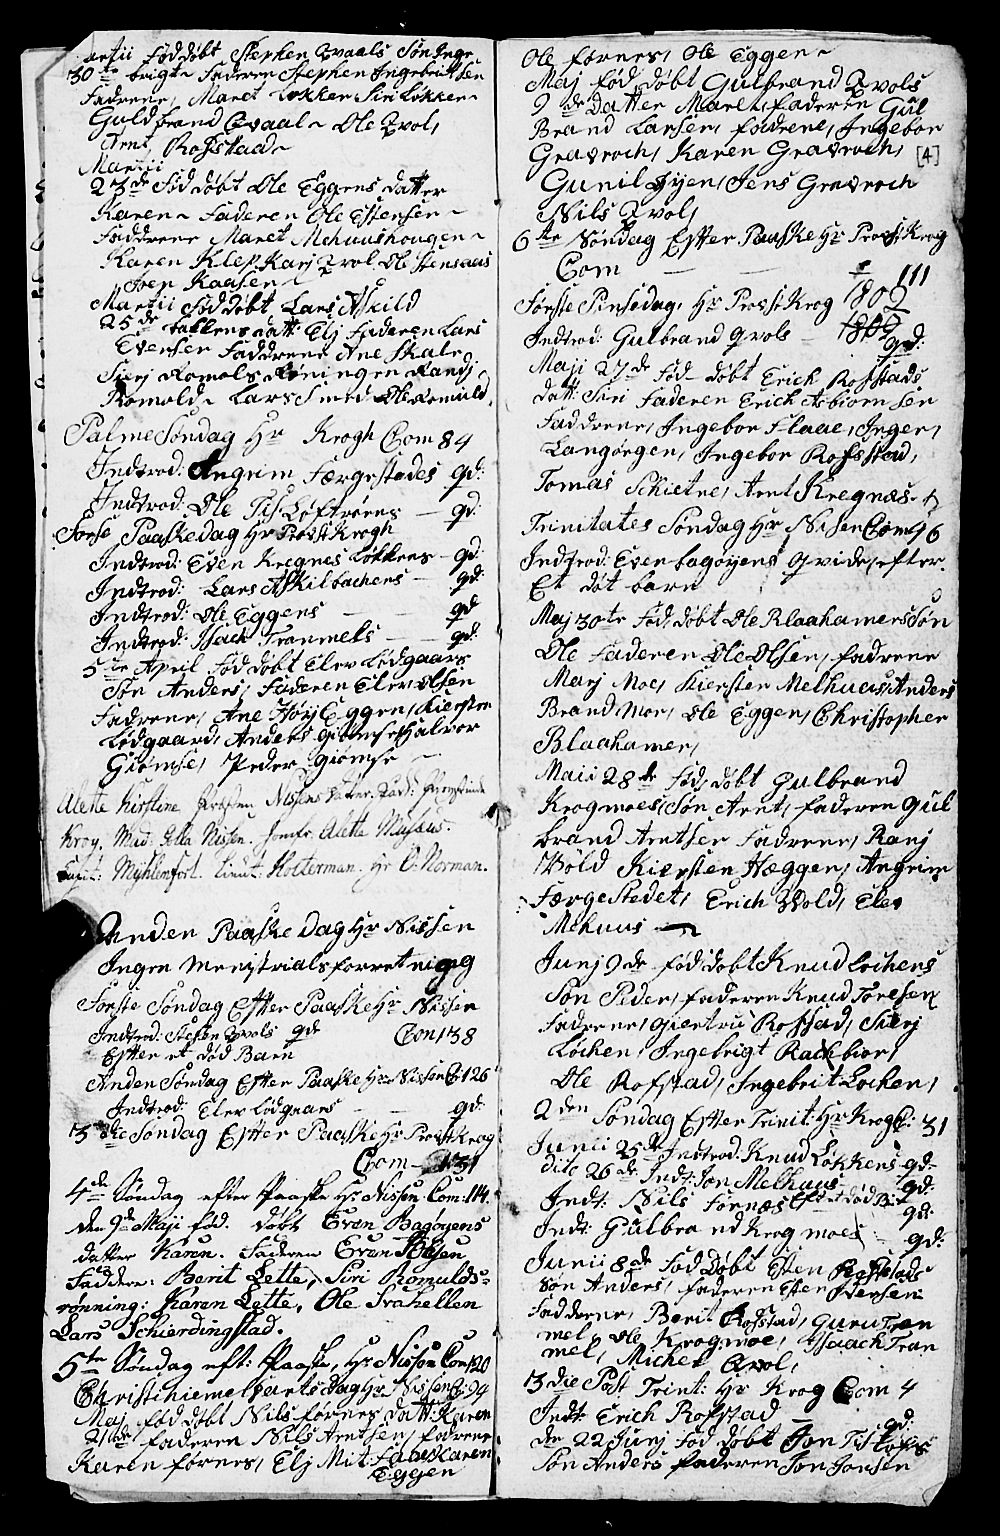 Martii fød døbt Stephen Qvaals Søn Inge
30te brigt~ Faderen Stephen Ingebritsen
Fadrene, Maret Løkken Siri Løkken~
Guldbrand Qvaal~ Ole Qvol,
Arnt, Rofstad~
Martii
23de Fød døbt Ole Eggens datter
Karen~ Faderen Ole Estensen~
Faddrene Maret Mehuushougen~
Karen Klep, Karj Qvol Ole Stensaas
Joen Kaasen~
Martii Fød døbt Lars Askild
25de bakkens datt: Elj Faderen Lars
Evensen Faddrene Ane Skale,
Siirj Romols Røningen Randj
Romold~ Lars Smed Ole Romuld,
Palme Søndag Hr Krogh Com 84
Indtrod: Angrim Færgestedes qd:
Indtrod: Ole Tis Løftrøens — qd:
Første Paaskedag Hr Prost Krogh
Indtrod: Even Kregnes Løkkens — qd:
Indtrod: Lars Askilbachens — qd:
Indtrod: Ole Eggens — qd
Indtrod: Isack Tranmels — qd:
5te April Fød døbt Elev Lødgaars
Søn Anders, Faderen Elev Olsen
Fadrene, Ane Høyj Eggen, Kiersten
Lødgaard, Anders Gimse Halvor
Giømse, Peder Giømse —
Alette Kirstine Nissens Datter. Fadd:
Krog. Mad: Nissen. Alette
Capit: Mÿhlenfort. Lieut: Holterman. Hr O: Norman.
Anden Paaske Dag Hr Nissen
Ingen Menistrialsforretning
Første Søndag Efter Paaske Hr Nissen
Indtrod: Stefen Qvols qd Com 138
Efter et død Barn
Anden Søndag Efter Paaske Hr Nissen C: 126
Indtrod: Elev Lødgaars — qd:
3die Søndag Efter Paaske Hr Prost Krog
Com — 131
4de Søndag efter Paaske Hr Nissen Com: 114.
den 9de Maji fød. døbt Even Bagøyens
datter Karen. Faderen Even
Faddere: Berit Lette, Siri Romulds-
rønning: Karen Lette, Ole
Lars Schierdingstad.
5te Søndag eft: Paaske, Hr Nissen Com 120
Christihiemelfarts dag Hr Nissen C: 94
Maj fød døbt Nils førnes datt: Karen
21de faderen Nils Arntsen, fadrene
Karen førnes, Elj Mit Karen
Eggen
Ole førnes, Ole Eggen~
Maj fød døbt Gulbrand Qvols
2de Datter Maret, faderen Gul
Brand Larsen, fadrene, Ingebor
Gravroch, Karen Gravroch,
[4]
Gunil Øyen, Jens Gravroch
Nils Qvol,
6te Søndag Efter Paaske Hr Prost Krog
Com — — 111
Første Pinsedag, Hr Prost Krog 1802
Indtrod: Gulbrand Qvols — 1802 qd:
Maji 27de fød døbt Erich Rofstads
datt: Siri Faderen Erich Asbiørnsen
Faddrene, Ingebor Flaae, Inger,
Langørgen, Ingebor Rofsstad,
Tomas Schietne, Arnt Kregnæs.
Trinitates Søndag Hr Nisen Com 96
Indtrod: Even bagøyens Qvide, efter
Et døt barn
Maj 30te Fød, døbt Ole Blaahamers Søn
Ole Faderen Ole Olsen, fadrene
Marj Moe, Kiersten Melhuus, Anders
Brand Moe, Ole Eggen, Christopher
Blaahamer,
Maii 28de fød, døbt Gulbrand
Krogmoes, Søn Arnt, faderen Gul
brand Arntsen Fadrene, Ranj
Vold Kiersten Hæggen, Angrim
Færgestedet, Erich Wold, Elev
Mehuus —
Junj 9de fød døbt Knud Lochens
Søn Peder, faderen Knud Toresen
Fadrene, Giertru Rofstad, Siirj
Løchen, Ingebrigt Rachbior,
Ole Rofstad, Ingebrit Lochen,
2den Søndag Efter Trinit: Hr Krog C: 31
Junii 25de Indtrod: Knud Løkkens qd
dito 26de Indt: Jon Melhuus — qd:
Indt: Nils Fornæs Eft et død B: qd:
Indt: Gulbrand Krogmoes — qd:
Junii 8de Fød Døbt Esten Rofstads
Søn Anders, faderen Esten Pdersen
Fadderne, Berit Rofstad, Guru Tran
mel, Ole Krogmoe, Isaach Tran
mel, Michel Qvol,
3die Post Trint: Hr Krog Com 4
Indt: Erich Rofstad — qd:
den 22 Junj Fød døbt Jon Tis Løfts
Søn Anders faderen Jon Jonsen